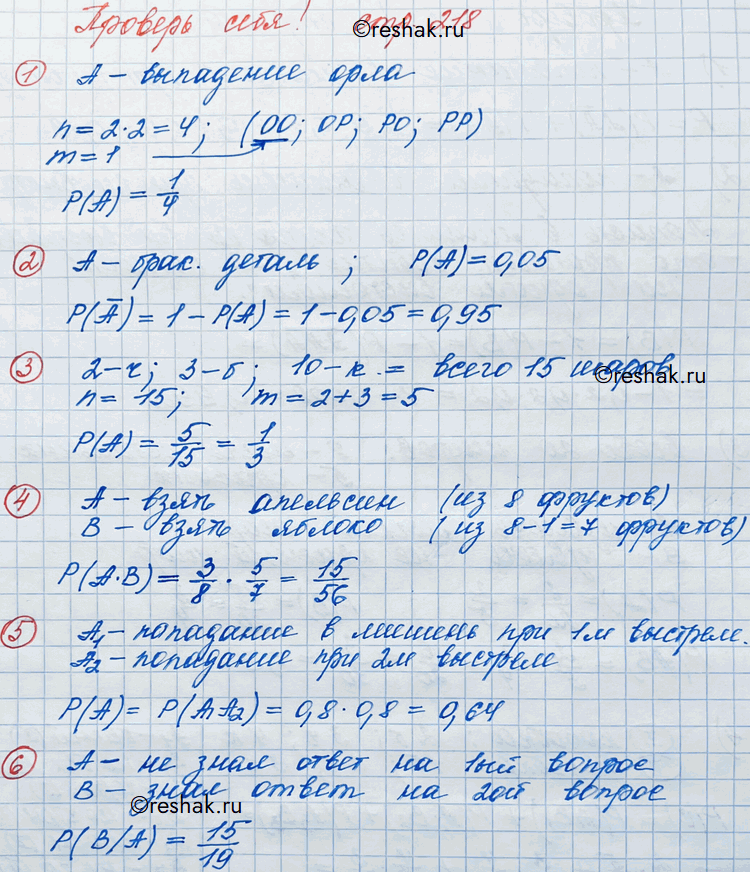 Проверь себя! стр. 218
©reshak.ru
1 A – выпадение орла
n = 2·2 = 4; (ОО; ОР; РО; РР)
m = 1
P(A) = 1/4
2 A – брак. деталь; P(A) = 0,05
P(Ā) = 1 – P(A) = 1 – 0,05 = 0,95
3 2–ч; 3–б; 10–к. = всего 15 шаров
©reshak.ru
n = 15; m = 2+3 = 5
P(A) = 5/15 = 1/3
4 A – взять апельсин (из 8 фруктов)
B – взять яблоко (из 8–1=7 фруктов)
P(A·B) = 3/8 · 5/7 = 15/56
5 A₁ – попадание в мишень при 1м выстреле.
A₂ – попадание при 2м выстреле
P(A) = P(A₁A₂) = 0,8·0,8 = 0,64
6 A – не знал ответ на 1ый вопрос
B – знал ответ на 2ой вопрос
©reshak.ru
P(B/A) = 15/19